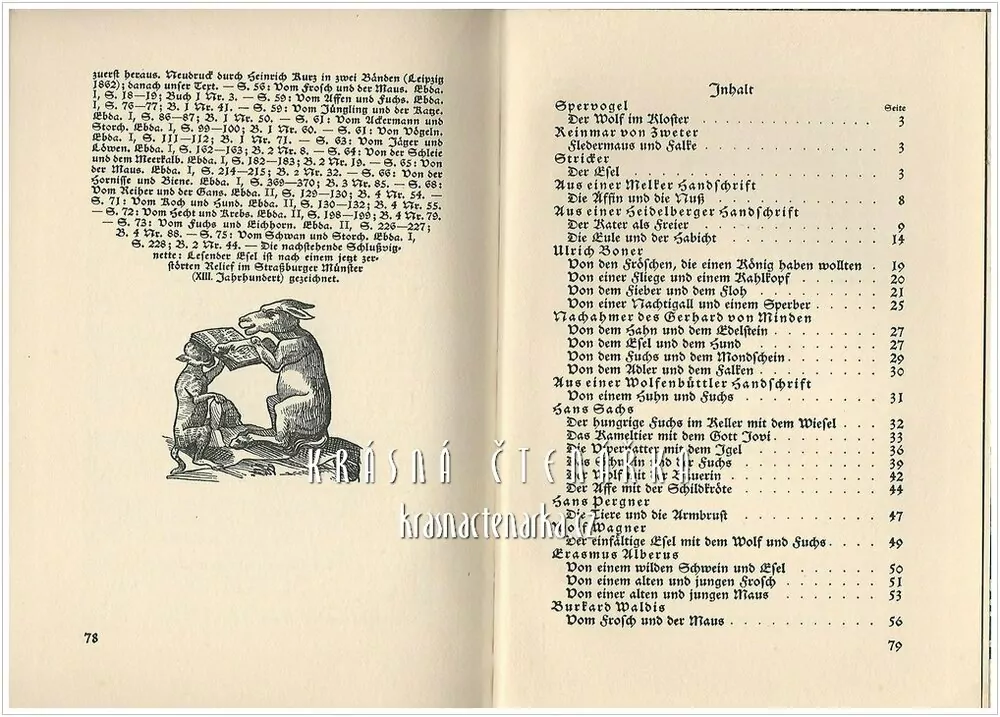 zuerst heraus. Neudruck durch Heinrich Kurz in zwei Bänden (Leipzig
1862); danach unser Text. — S. 56: Vom Frosch und der Maus. Ebda.
I, S. 18—19; Buch 1 Nr. 3. — S. 59: Vom Affen und Fuchs. Ebda.
I, S. 76—77; B. 1 Nr. 41. — S. 59: Vom Jüngling und der Katze.
Ebda. I, S. 86—87; B. 1 Nr. 50. — S. 61: Vom Ackermann und
Storch. Ebda. I, S. 99—100; B. 1 Nr. 60. — S. 61: Von Vögeln.
Ebda. I, S. 111—112; B. 1 Nr. 71. — S. 63: Vom Jäger und
Löwen. Ebda. I, S. 162—163; B. 2 Nr. 8. — S. 64: Von der Schleie
und dem Meerkalb. Ebda. I, S. 182—183; B. 2 Nr. 19. — S. 65: Von
der Maus. Ebda. I, S. 214—215; B. 2 Nr. 32. — S. 66: Von der
Hornisse und Biene. Ebda. I, S. 369—370; B. 3 Nr. 85. — S. 68:
Vom Reiher und der Gans. Ebda. II, S. 129—130; B. 4 Nr. 54. —
S. 71: Vom Koch und Hund. Ebda. II, S. 130—132; B. 4 Nr. 55.
— S. 72: Vom Hecht und Krebs. Ebda. II, S. 198—199; B. 4 Nr. 79.
— S. 73: Vom Fuchs und Eichhorn. Ebda. II, S. 226—227;
B. 4 Nr. 88. — S. 75: Von Schwan und Storch. Ebda. I,
S. 228; B. 2 Nr. 44. — Die nachstehende Schlußvig-
nette: Lesender Esel ist nach einem jetzt zer-
störten Relief im Straßburger Münster
(XIII. Jahrhundert) gezeichnet.
78
Inhalt
Seite
Spervogel
Der Wolf im Kloster . . . . . . . . . . 3
Reinmar von Zweter
Fledermaus und Falke . . . . . . . . . . 3
Stricker
Der Esel . . . . . . . . . . 3
Aus einer Melker Handschrift
Die Äffin und die Nuß . . . . . . . . . . 8
Aus einer Heidelberger Handschrift
Der Kater als Freier . . . . . . . . . . 9
Die Eule und der Habicht . . . . . . . . . . 14
Ulrich Boner
Von den Fröschen, die einen König haben wollten . 19
Von einer Fliege und einem Kahlkopf . . . . . . 20
Von dem Fieber und dem Floh . . . . . . . . 21
Von einer Nachtigall und einem Sperber . . . . . 25
Nachahmer des Gerhard von Minden
Von dem Hahn und dem Edelstein . . . . . . . 27
Von dem Esel und dem Hund . . . . . . . . 27
Von dem Fuchs und dem Mondschein . . . . . . 29
Von dem Adler und dem Falken . . . . . . . 30
Aus einer Wolfenbüttler Handschrift
Von einem Huhn und Fuchs . . . . . . . . 31
Hans Sachs
Der hungrige Fuchs im Keller mit dem Wiesel . . . 32
Das Kameltier mit dem Gott Jovi . . . . . . . 33
Die Vipernatter mit dem Igel . . . . . . . 36
und der Fuchs . . . . . . . 39
Wolf mit der . . . . . . . 42
Der Affe mit der Schildkröte . . . . . . . 44
Hans Pergner
Die Tiere und die Armbrust . . . . . . . 47
Wolf Wagner
Der einfältige Esel mit dem Wolf und Fuchs . . . . 49
Erasmus Alberus
Von einem wilden Schwein und Esel . . . . . . 50
Von einem alten und jungen Frosch . . . . . . 51
Von einer alten und jungen Maus . . . . . . 53
Burkard Waldis
Vom Frosch und der Maus . . . . . . . . 56
79
KRÁSNÁ ČTENÁŘKA
krasnactenarka.cz